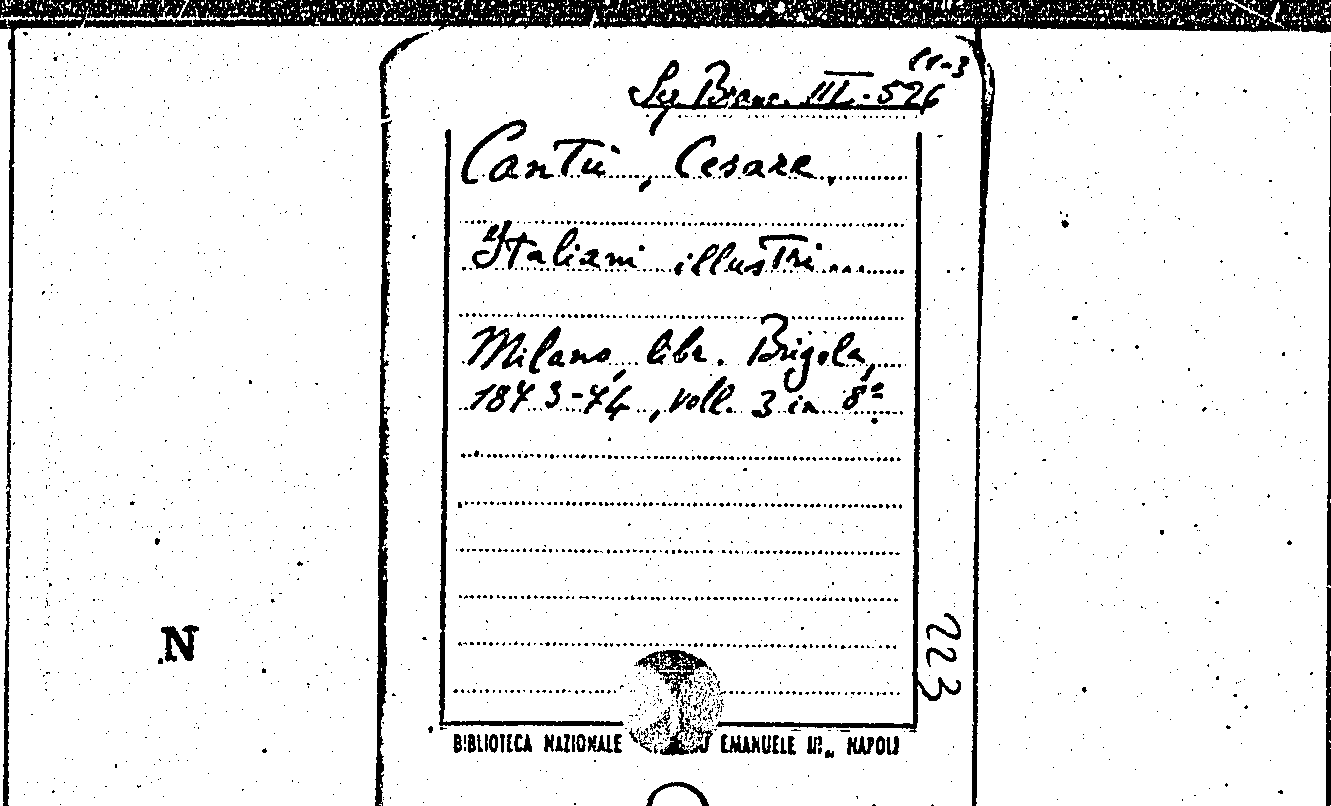 (1-3
Sg. Branc. III.-526
Cantù, Cesare.
Italiani illustri...
Milano, libr. Brigola,
1873-74, voll. 3 in 8º.
N
223
BIBLIOTECA NAZIONALE EMANUELE III„ NAPOLI